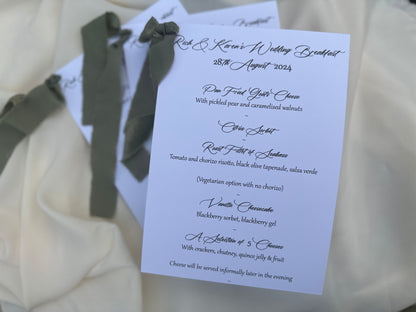 Rich & Karen's Wedding Breakfast
28th August 2024
Pan Fried Goats Cheese
With pickled pear and caramelised walnuts
~
Citrus Sorbet
~
Roast Fillet of Seabass
Tomato and chorizo risotto, black olive tapenade, salsa verde
(Vegetarian option with no chorizo)
~
Vanilla Cheesecake
Blackberry sorbet, blackberry gel
~
A Selection of 5 Cheeses
With crackers, chutney, quince jelly & fruit
Cheese will be served informally later in the evening
~
Breakfast